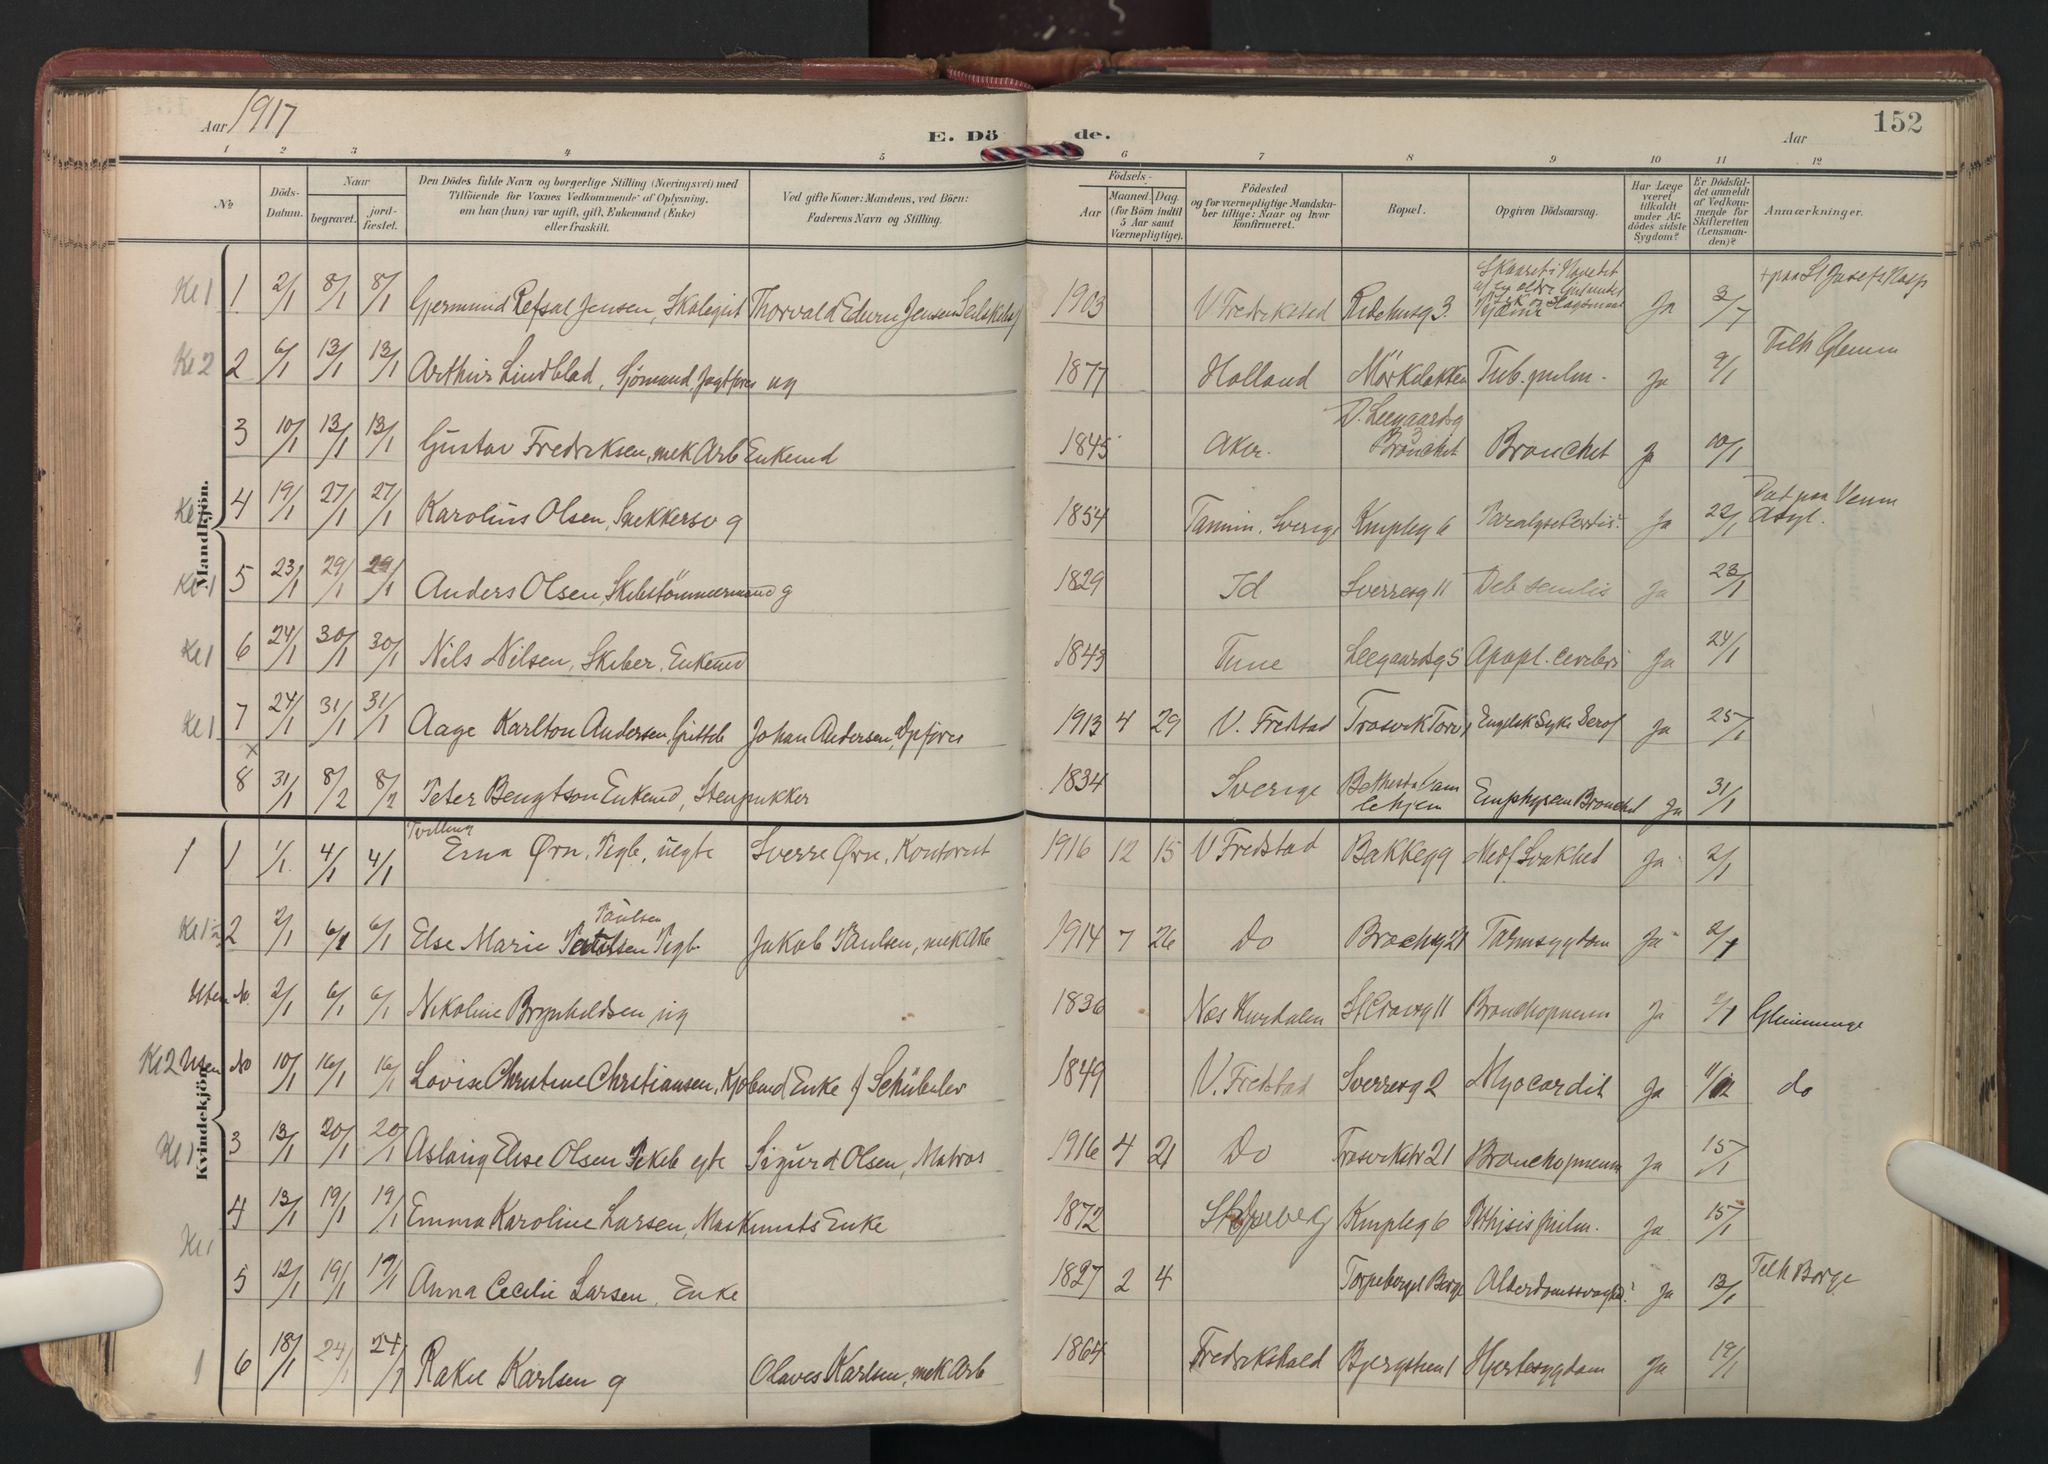 Aar 1917
E. Dö de.
Aar
152
1 2 3 4 5 6 7 8 9 10 11 12
No
Döds-Datum.
Naar
begravet.
jord-fæstet.
Den Dödes fulde Navn og borgerlige Stilling (Næringsvei) med
Tilföiende for Voxnes Vedkommende af Oplysning,
om han (hun) var ugift, gift, Enkemand (Enke)
eller fraskilt.
Ved gifte Koner: Mandens, ved Börn:
Faderens Navn og Stilling.
Födsels-
Aar
Maaned. Dag.
(for Börn indtil
5 Aar samt
Værnepligtige).
Födested
og for værnepligtige Mandska-
ber tillige: Naar og hvor
konfirmeret.
Bopæl.
Opgiven Dödsaarsag.
Har Læge
været
tilkaldt
under Af-
dödes sidste
Sygdom?
Er Dödsfal-
det anmeldt
af Vedkom-
mende for
Skifteretten
(Lensman-
den)?
Anmærkninger.
Mandkjön.
Kl 1 1 2/1 8/1 8/1 Gjermund Refsal Jensen, Skolegut Thorvald Edvin Jensen 1903 V Fredrikstad Ridehusg 3. Ja 3/1 + paa St Josefs Hosp
Kl 2 2 6/1 13/1 13/1 Arthur Lindblad, Sjömand ug 1877 Holland Tub. pulm. Ja 9/1 Tilh Glemm
3 10/1 13/1 13/1 Gustav Fredriksen, mek Arb Enkemd 1845 Aker. D. Leegaardsg 3 Bronchit Bronchit Ja 10/1
4 19/1 27/1 27/1 Karolius Olsen, Snekkersv g 1854 Tanum, Sverige Kmpleg 6 Ja 22/1 Död paa Asyl.
Kl 1 5 23/1 29/1 29/1 Anders Olsen, Skibstömmermand g 1829 Id Sverresg 11 Deb senilis Ja 23/1
Kl 1 6 24/1 30/1 30/1 Nils Nilsen, Skiber, Enkemd 1843 Tune Leegaardsg 5 Apopl. cerebri Ja 24/1
Kl 1 7 24/1 31/1 31/1 Aage Karlton Andersen, Johan Andersen, Dpförer 1913 4 29 V. Fredstad Trosvik Torv 1 Engelsk Syke Ja 25/1
x 8 31/1 8/2 8/2 Peter Bengtson Enkemd, Stenpukker 1834 Sverige Bethesda Gamlehjem Emphysem Bronchit Ja 31/1
Kvindekjön.
1 1 1/1 4/1 4/1 Tvilling Erna Ørn, Pigb, uegte Sverre Ørn, Kontorist 1916 12 15 V Fredstad Bakkeg 9 Medf Svakhed Ja 2/1
Kl 1 2 2/1 6/1 6/1 Else Marie Paulsen Pigb Jakob Paulsen, mek Arb 1914 7 26 Do Brochsg 21 Tarmsygdom Ja 2/1
Uten No 2/1 6/1 6/1 Nikoline Brynhildsen ug 1836 St Croixg 11 Bronchopneum Ja 2/1
Kl 2 Uten No 10/1 16/1 16/1 Lovise Christine Christiansen, Kjöbmd Enke f Schübelev 1849 V. Fredstad Sverresg 2 Myocardit Ja 11/12 do
Kl 1 3 13/1 20/1 20/1 Aslaug Elise Olsen Pikeb egte Sigurd Olsen, Matros 1916 4 21 Do Trosvikstr 21 Bronchopneum Ja 15/1
4 13/1 19/1 19/1 Emma Karoline Larsen, Maskinists Enke 1872 Skjeberg Kmpleg 6 Pthisis pulm. Ja 15/1
Kl 1 5 12/1 19/1 19/1 Anna Cecilie Larsen, Enke 1827 2 4 Torpeberget Borge Alderdomssvaghed Ja 13/1 Tilh Borge
1 6 18/1 24/1 24/1 Rakel Karlsen g Olaves Karlsen, mek Arb 1864 Fredrikshald Bjergstien 1 Hjertesygdom Ja 19/1